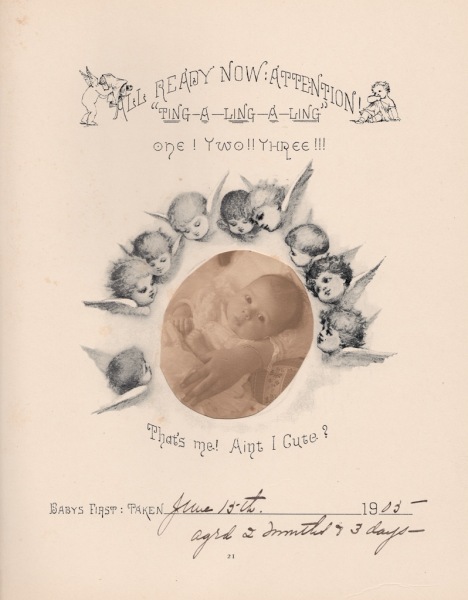 ALL READY NOW: ATTENTION!
"TING-A-LING-A-LING"
One! Two!! Three!!!
That's me! Aint I Cute?
Babys First: Taken June 15th. 1905
aged 2 months & 3 days—
21